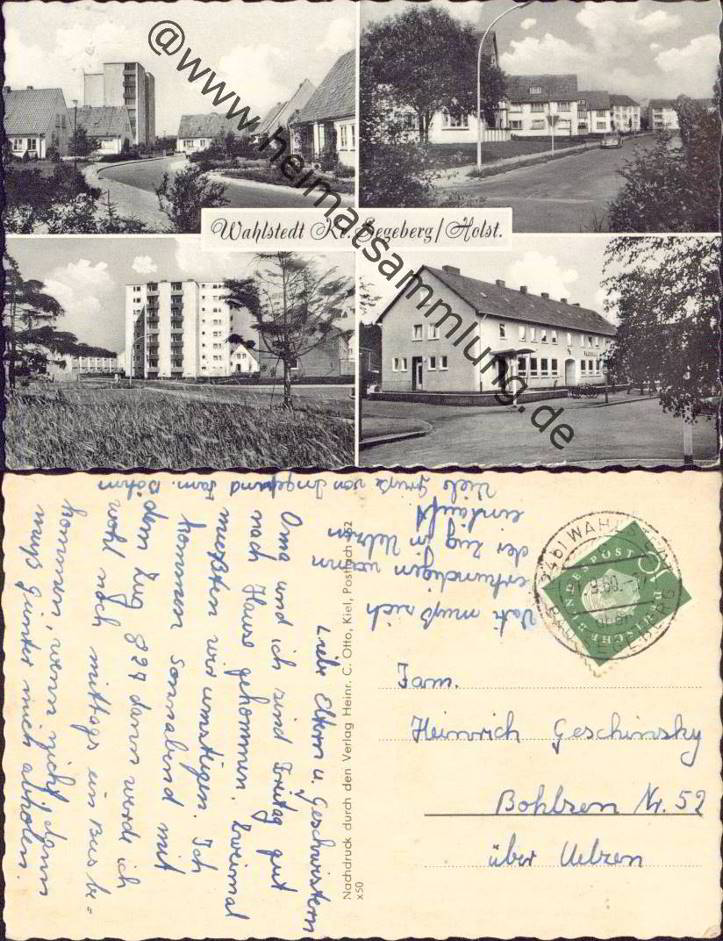 @www.heimatsammlung.de
Wahlstedt Kr. Segeberg/Holst.
Liebe Eltern u. Geschwistern
Oma und ich sind Freitag gut
nach Hause gekommen. Zweimal
mußten wir umsteigen. Ich
kommen Sonnabend mit
dem Zug 827 dann werde ich
wohl noch mittags ein Bus be=
kommen, wenn nicht, dann
muß Günter mich abholen.
Vati muß sich
erkundigen wann
der Zug in Uelzen
einläuft
Viele Grüße von Inge und Fam. Böhm
Nachdruck durch den Verlag Heinr. C. Otto, Kiel, Postfach 352
x50
DEUTSCHE BUNDESPOST
8
Fam.
Heinrich Geschinsky
Bohlsen Nr. 52
über Uelzen